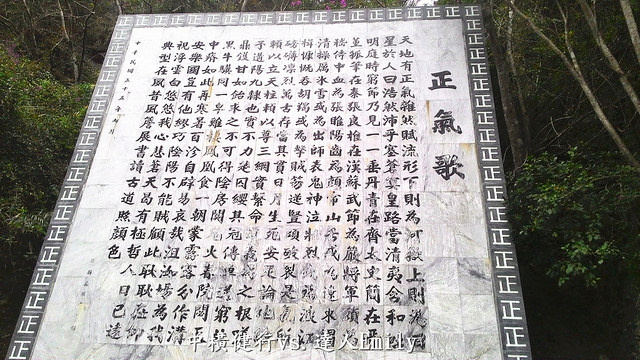 正氣歌
天地有正氣雜然賦流形下則為河嶽上則為日
星於人曰浩然沛乎塞蒼冥皇路當清夷含和吐
明庭時窮節乃見一一垂丹青在齊太史簡在晉
董狐筆在秦張良椎在漢蘇武節為嚴將軍頭為
嵇侍中血為張睢陽齒為顏常山舌或為遼東帽
清操厲冰雪或為出師表鬼神泣壯烈或為渡江
楫慷慨吞胡羯或為擊賊笏逆豎頭破裂是氣所
磅礡凜烈萬古存當其貫日月生死安足論地維
賴以立天柱賴以尊三綱實繫命道義為之根嗟
予遘陽九隸也實不力楚囚纓其冠傳車送窮北
鼎鑊甘如飴求之不可得陰房闃鬼火春院閟天
黑牛驥同一皂雞棲鳳凰食一朝蒙霧露分作溝
中瘠如此再寒暑百沴自辟易哀哉沮洳場為我
安樂國豈有他繆巧陰陽不能賊顧此耿耿在仰
視浮雲白悠悠我心悲蒼天曷有極哲人日已遠
典型在夙昔風簷展書讀古道照顏色
中華民國五十五年
中橫健行Vs.達人Emily